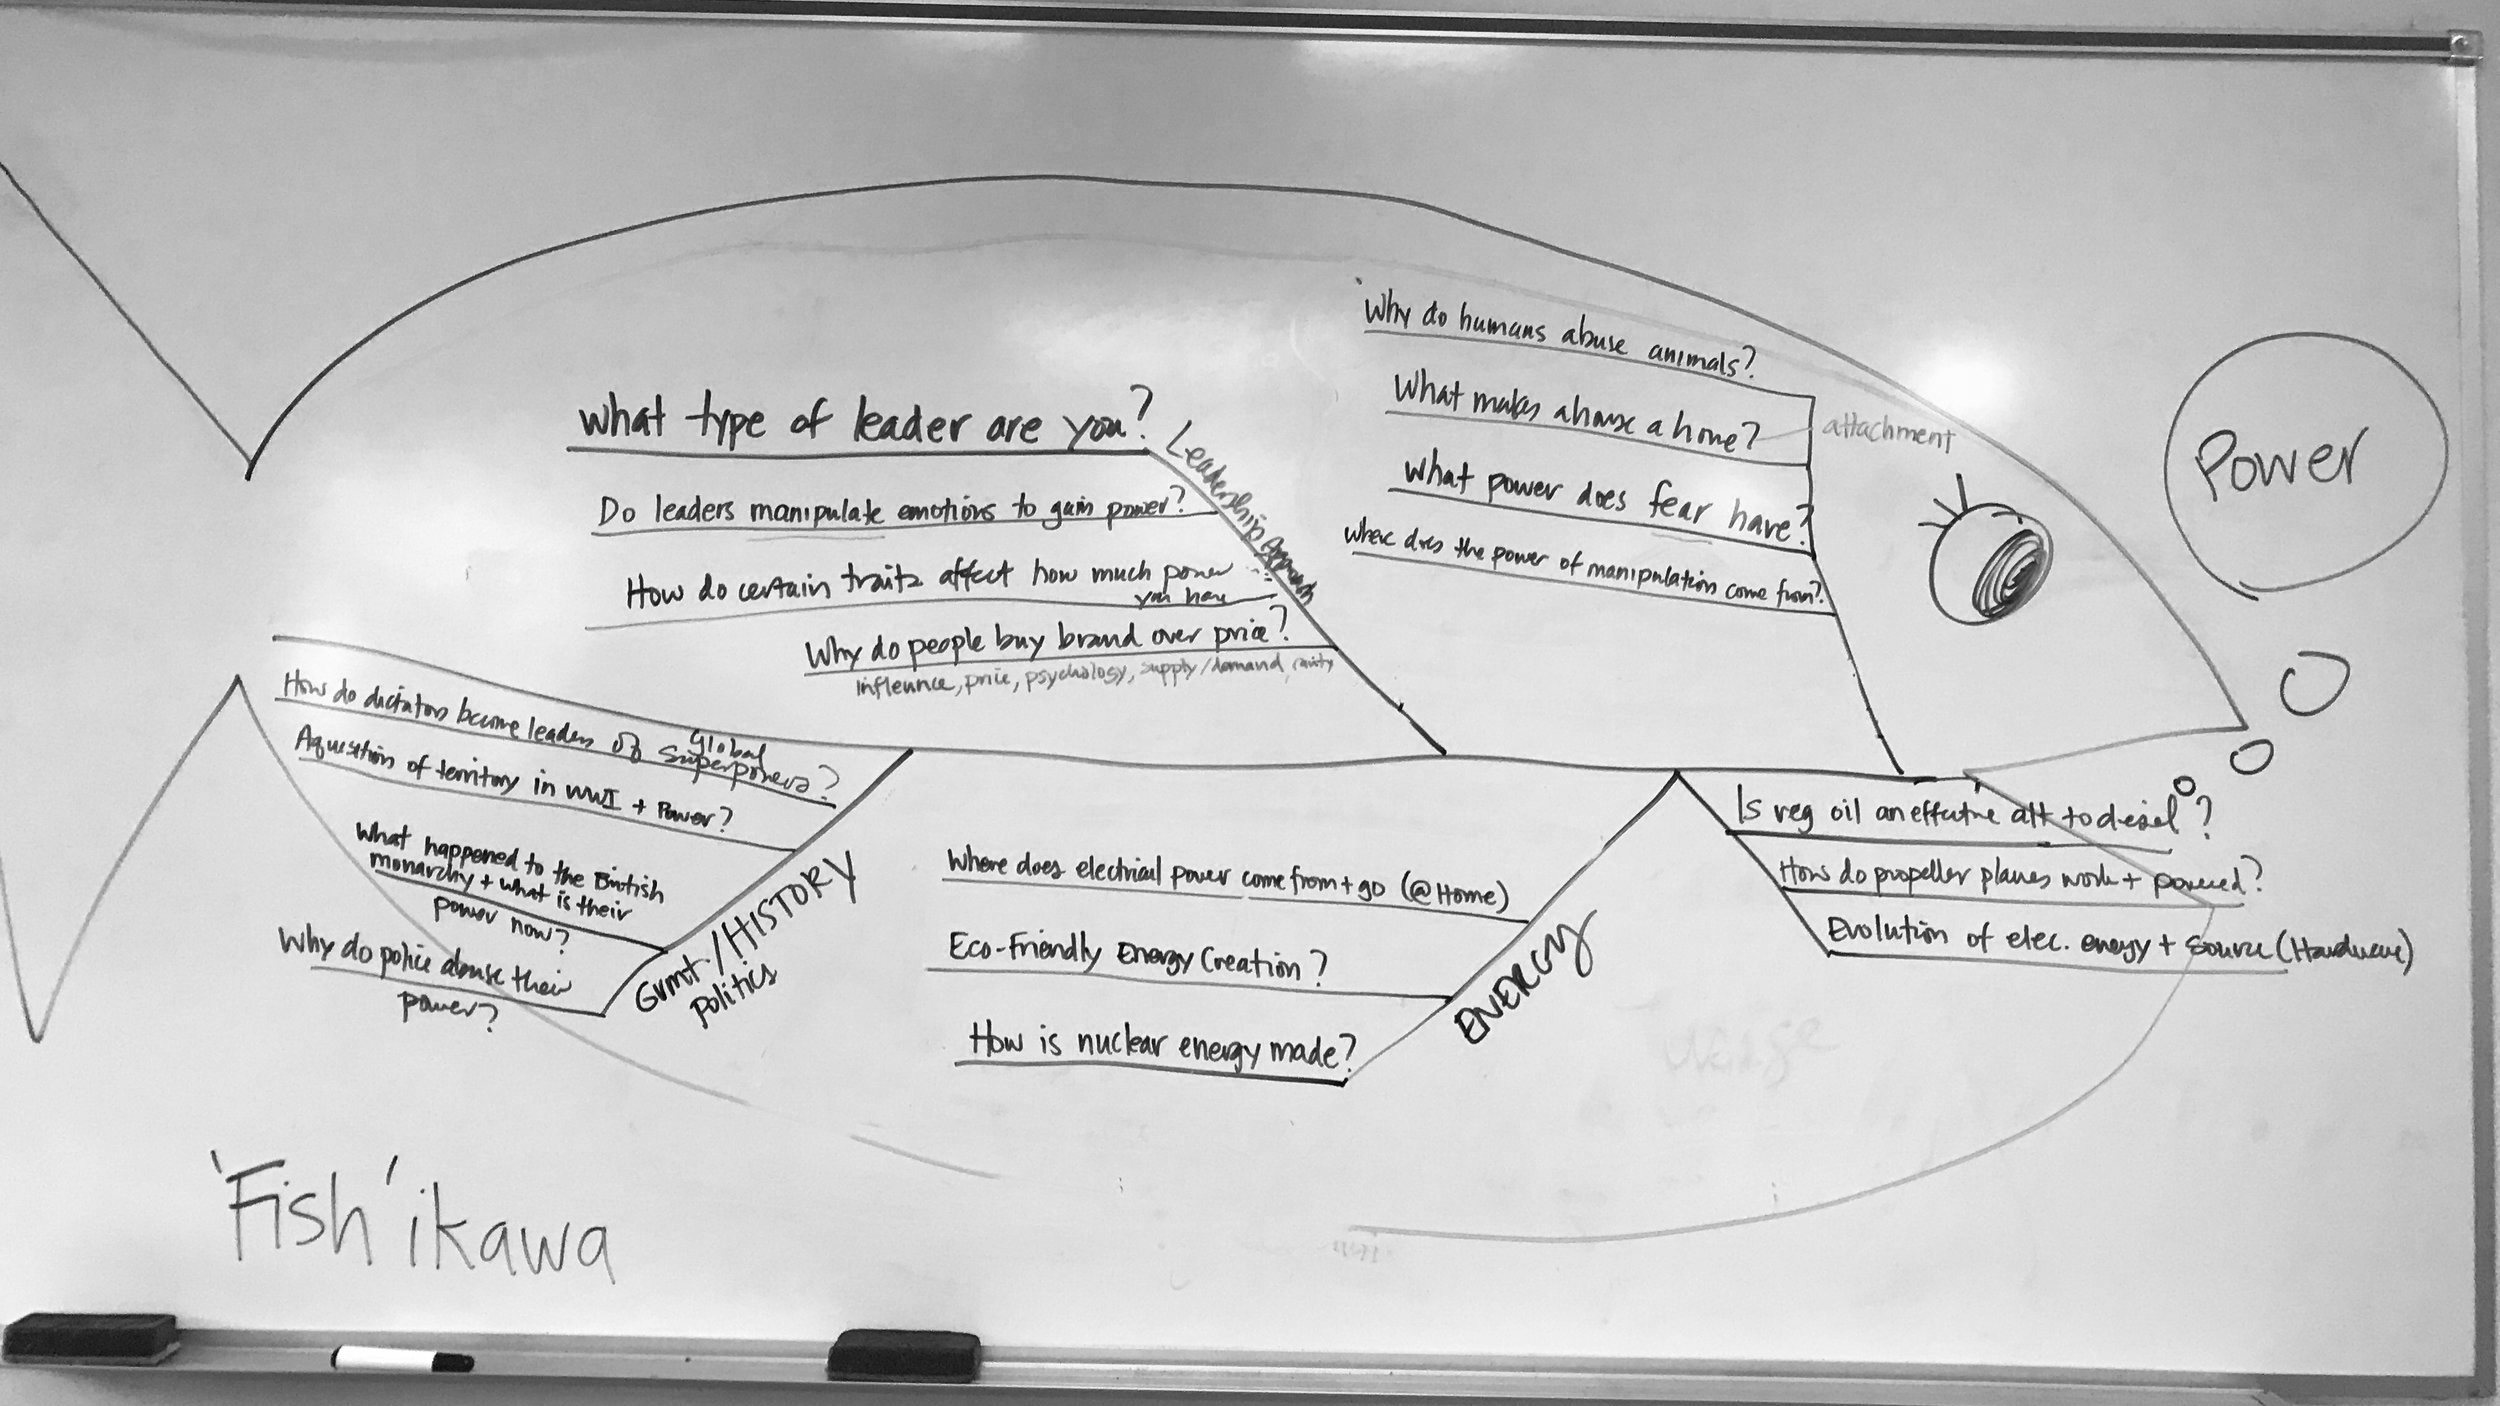 What type of leader are you?
Do leaders manipulate emotions to gain power?
How do certain traits affect how much power
you have
Why do people buy brand over price?
Influence, price, psychology, supply/demand,
Leadership
Why do humans abuse animals?
What makes a house a home?
attachment
What power does fear have?
Where does the power of manipulation come from?
Power
How do dictators become leaders of
Global
Superpowers?
Aquisition of territory in WWI + Power?
What happened to the British
monarchy + what is their
power now?
Why do police abuse their
power?
Gvmt./HISTORY
Politics
Where does electrical power come from + go (@Home)
Eco-Friendly Energy Creation?
How is nuclear energy made?
ENERGY
Is veg oil an effective alt to diesel?
How do propeller planes work + powered?
Evolution of elec. energy + source (Hardware)
'Fish'ikawa